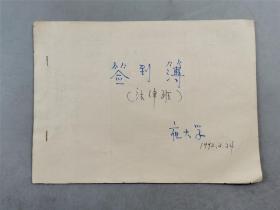 签到簿
(法律班)
夜大学
1992.2.24